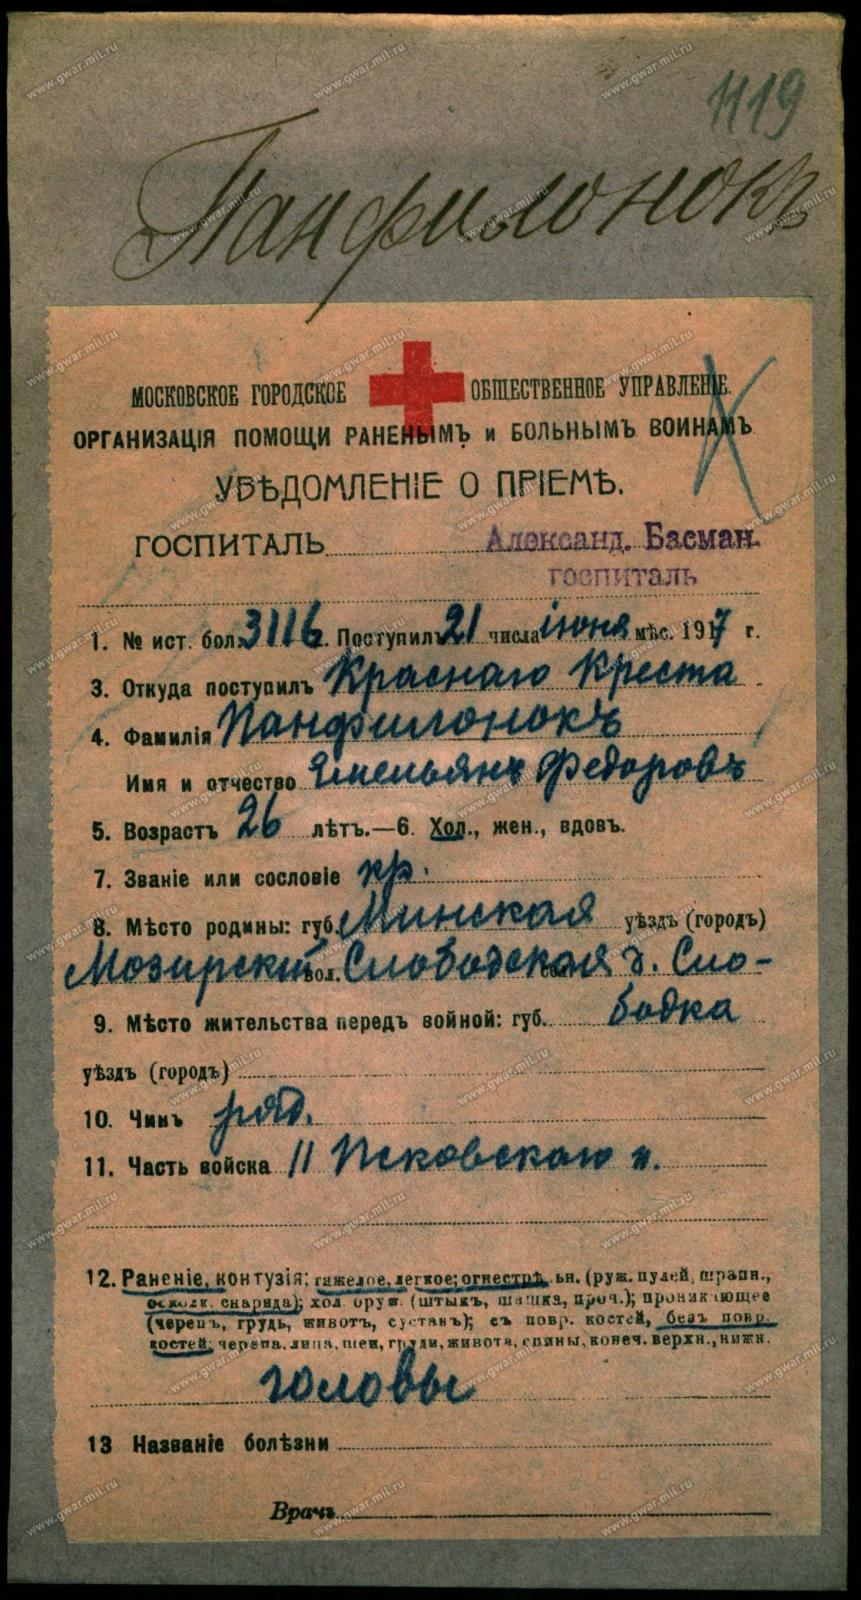 1119
Панфилонокъ
МОСКОВСКОЕ ГОРОДСКОЕ ОБЩЕСТВЕННОЕ УПРАВЛЕНІЕ.
ОРГАНИЗАЦІЯ ПОМОЩИ РАНЕНЫМЪ и БОЛЬНЫМЪ ВОИНАМЪ
УВѢДОМЛЕНІЕ О ПРІЕМѢ.
ГОСПИТАЛЬ Александ. Басман.
госпиталь
1. № ист. бол. 3116. Поступилъ 21 числа іюня мѣс. 1917 г.
3. Откуда поступилъ Краснаго Креста
4. Фамилія Панфилонокъ
Имя и отчество Емельянъ Федоровъ
5. Возрастъ 26 лѣтъ.—6. Хол., жен., вдов.
7. Званіе или сословіе кр.
8. Мѣсто родины: губ. Минская уѣздъ (городъ)
Мозирскій вол. Слободская д. Сло-
9. Мѣсто жительства передъ войной: губ. бодка
уѣздъ (городъ)
10. Чинъ ряд.
11. Часть войска 11 Псковскаго п.
12. Раненіе, контузія: тяжелое, легкое; огнестрѣльн. (руж. пулей, шрапн.,
осколк. снаряда); хол. оруж. (штыкъ, шашка, проч.); проникающее
(черепъ, грудь, животъ, суставъ); съ повр. костей, безъ повр.
костей; черепа, лица, шеи, груди, живота, спины, конеч. верхн., нижн.
головы
13 Названіе болѣзни
Врачъ
www.gwar.mil.ru